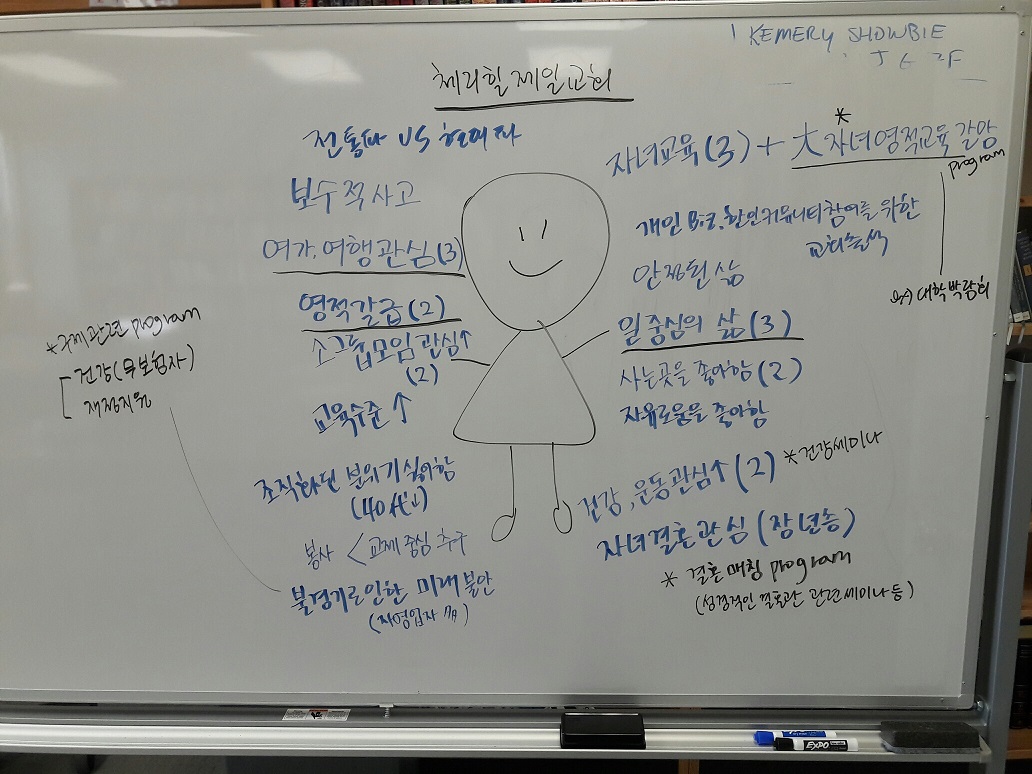 KEMERY SHOWBIE
체리힐제일교회
전통파 VS 현대파
보수적사고
여가, 여행관심(3)
영적갈급(2)
소그룹모임관심↑
(2)
교육수준 ↑
조직화된 분위기싫어함
봉사 < 교제 중심 추구
불경기로인한 미래불안
(자영업자 多)
*구제관련 program
건강(무보험자)
재정지원
*
자녀교육(3) + 大자녀영적교육갈망
program
개인 Biz. 한인커뮤니티참여를 위한
교회출석
안정된 삶
ex) 대학박람회
일 중심의 삶(3)
사는곳을 좋아함(2)
자유로움을 좋아함
건강, 운동관심↑(2) *건강세미나
자녀결혼관심(장년층)
* 결혼매칭 program
(성경적인 결혼관 관련세미나 등)
EXPO